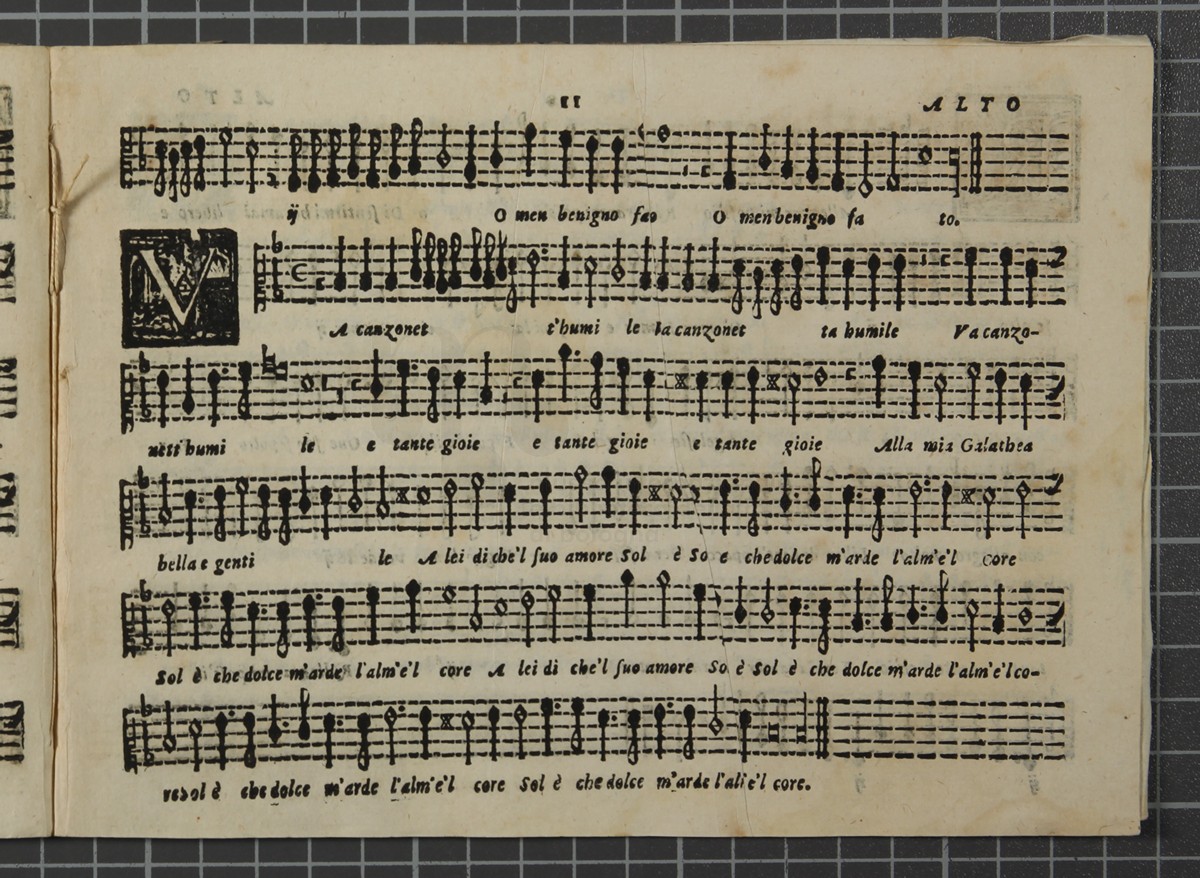 11 ALTO
ij O men benigno fao O men benigno fa to.
V
A canzonet t'humi le la canzonet ta humile Va canzo-
nett'humi le e tante gioie e tante gioie e tante gioie Alla mia Galathea
bella e genti le A lei di che'l suo amore Sol è So e che dolce m'arde l'alm'e'l core
Sol è che dolce m'arde l'alm'e'l core A lei di che'l suo amore So è Sol è che dolce m'arde l'alm'e'l co-
resol è che dolce m'arde l'alm'e'l core Sol è che dolce m'arde l'al'e'l core.